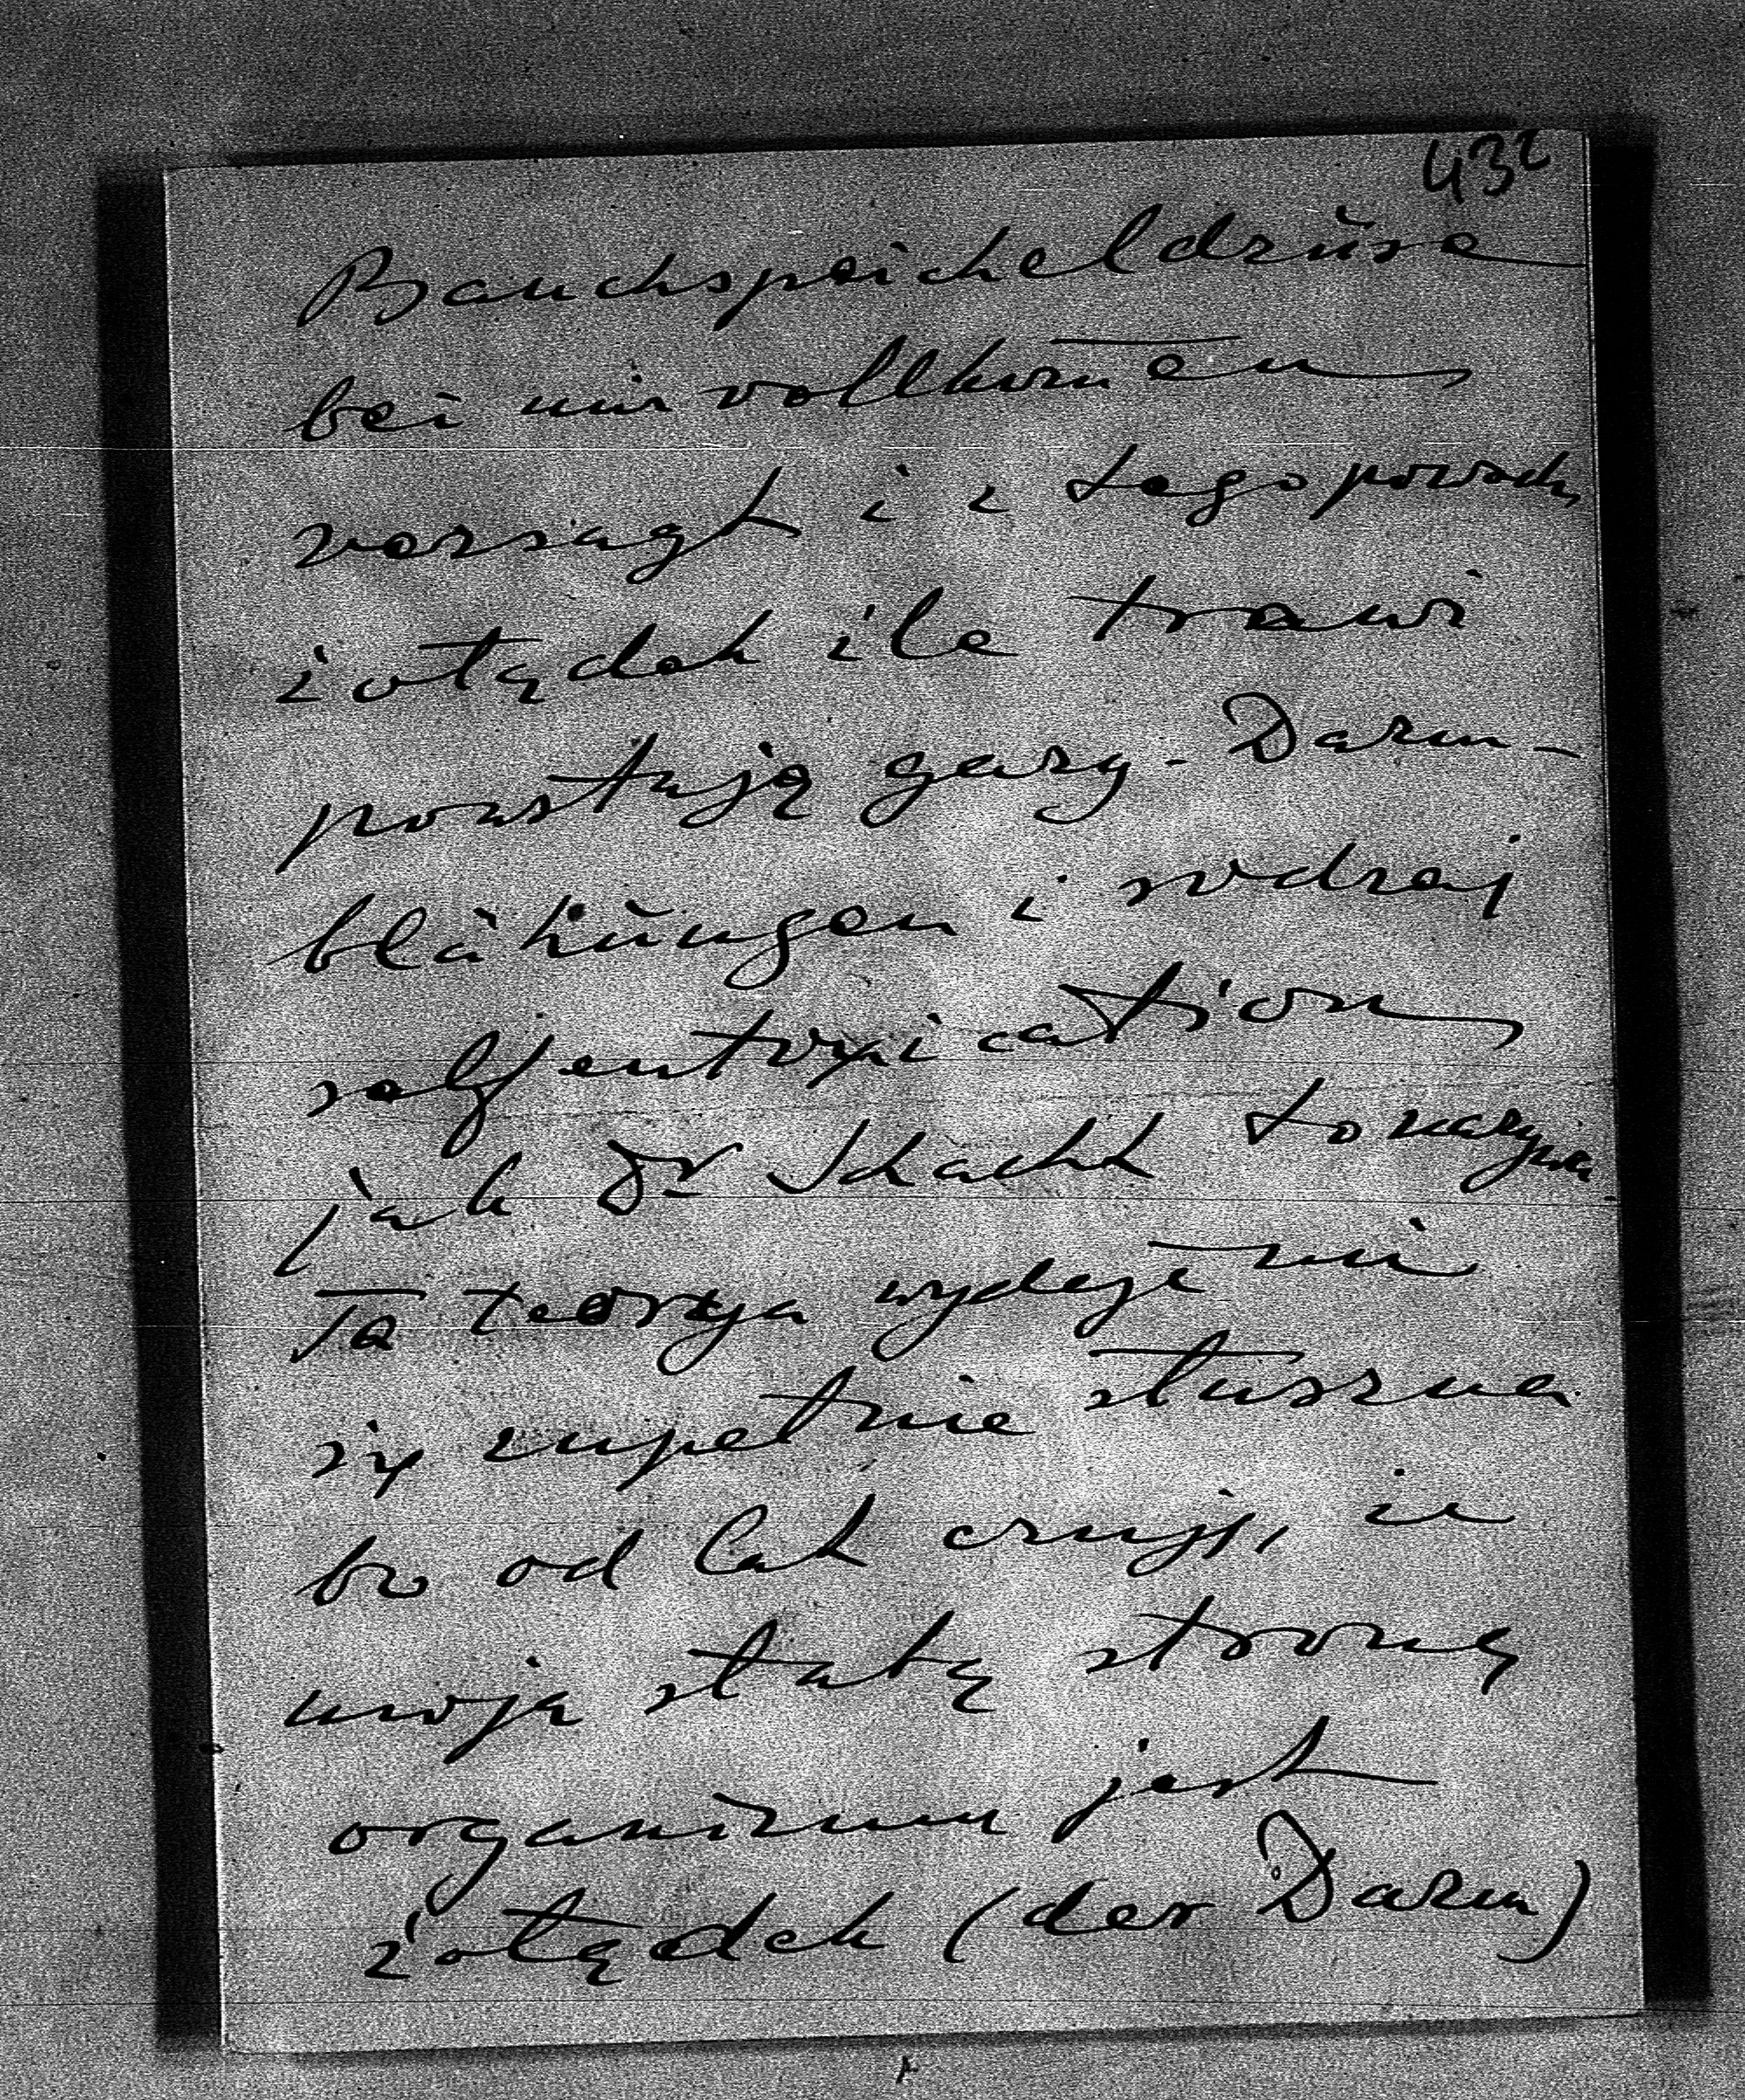 432
Bauchspeicheldrüse
bei mir vollkom̄en
versagt i z tego powodu
żołądek źle trawi
powstają gazy. Darm-
blähŭngen i rodzaj
selfentoxication
jak Dr Schacht to nazywa.
Ta teorya wydaje mi
się zupełnie słuszna
bo od lat czuję, że
moją słabą stroną
organizmu jest
żołądek (der Darm)